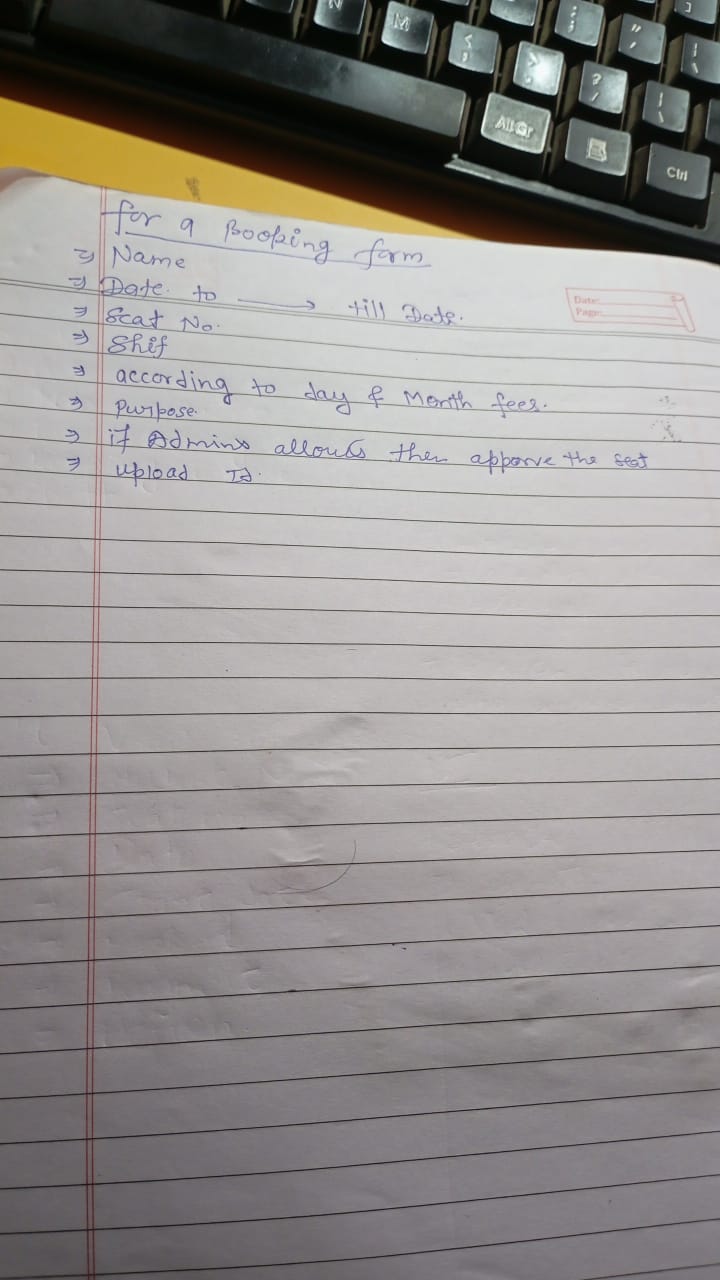 N
M
<
,
>
.
:
;
"
'
?
/
|
\
Alt Gr
Ctrl
for a Booking form
⇒ Name
⇒ Date to ⟶ till Date.
⇒ Seat No.
⇒ Shif
⇒ according to day & Month fees.
⇒ Purpose.
⇒ if Admins allouds then apporve the seat
⇒ upload Id.
Date:
Page: